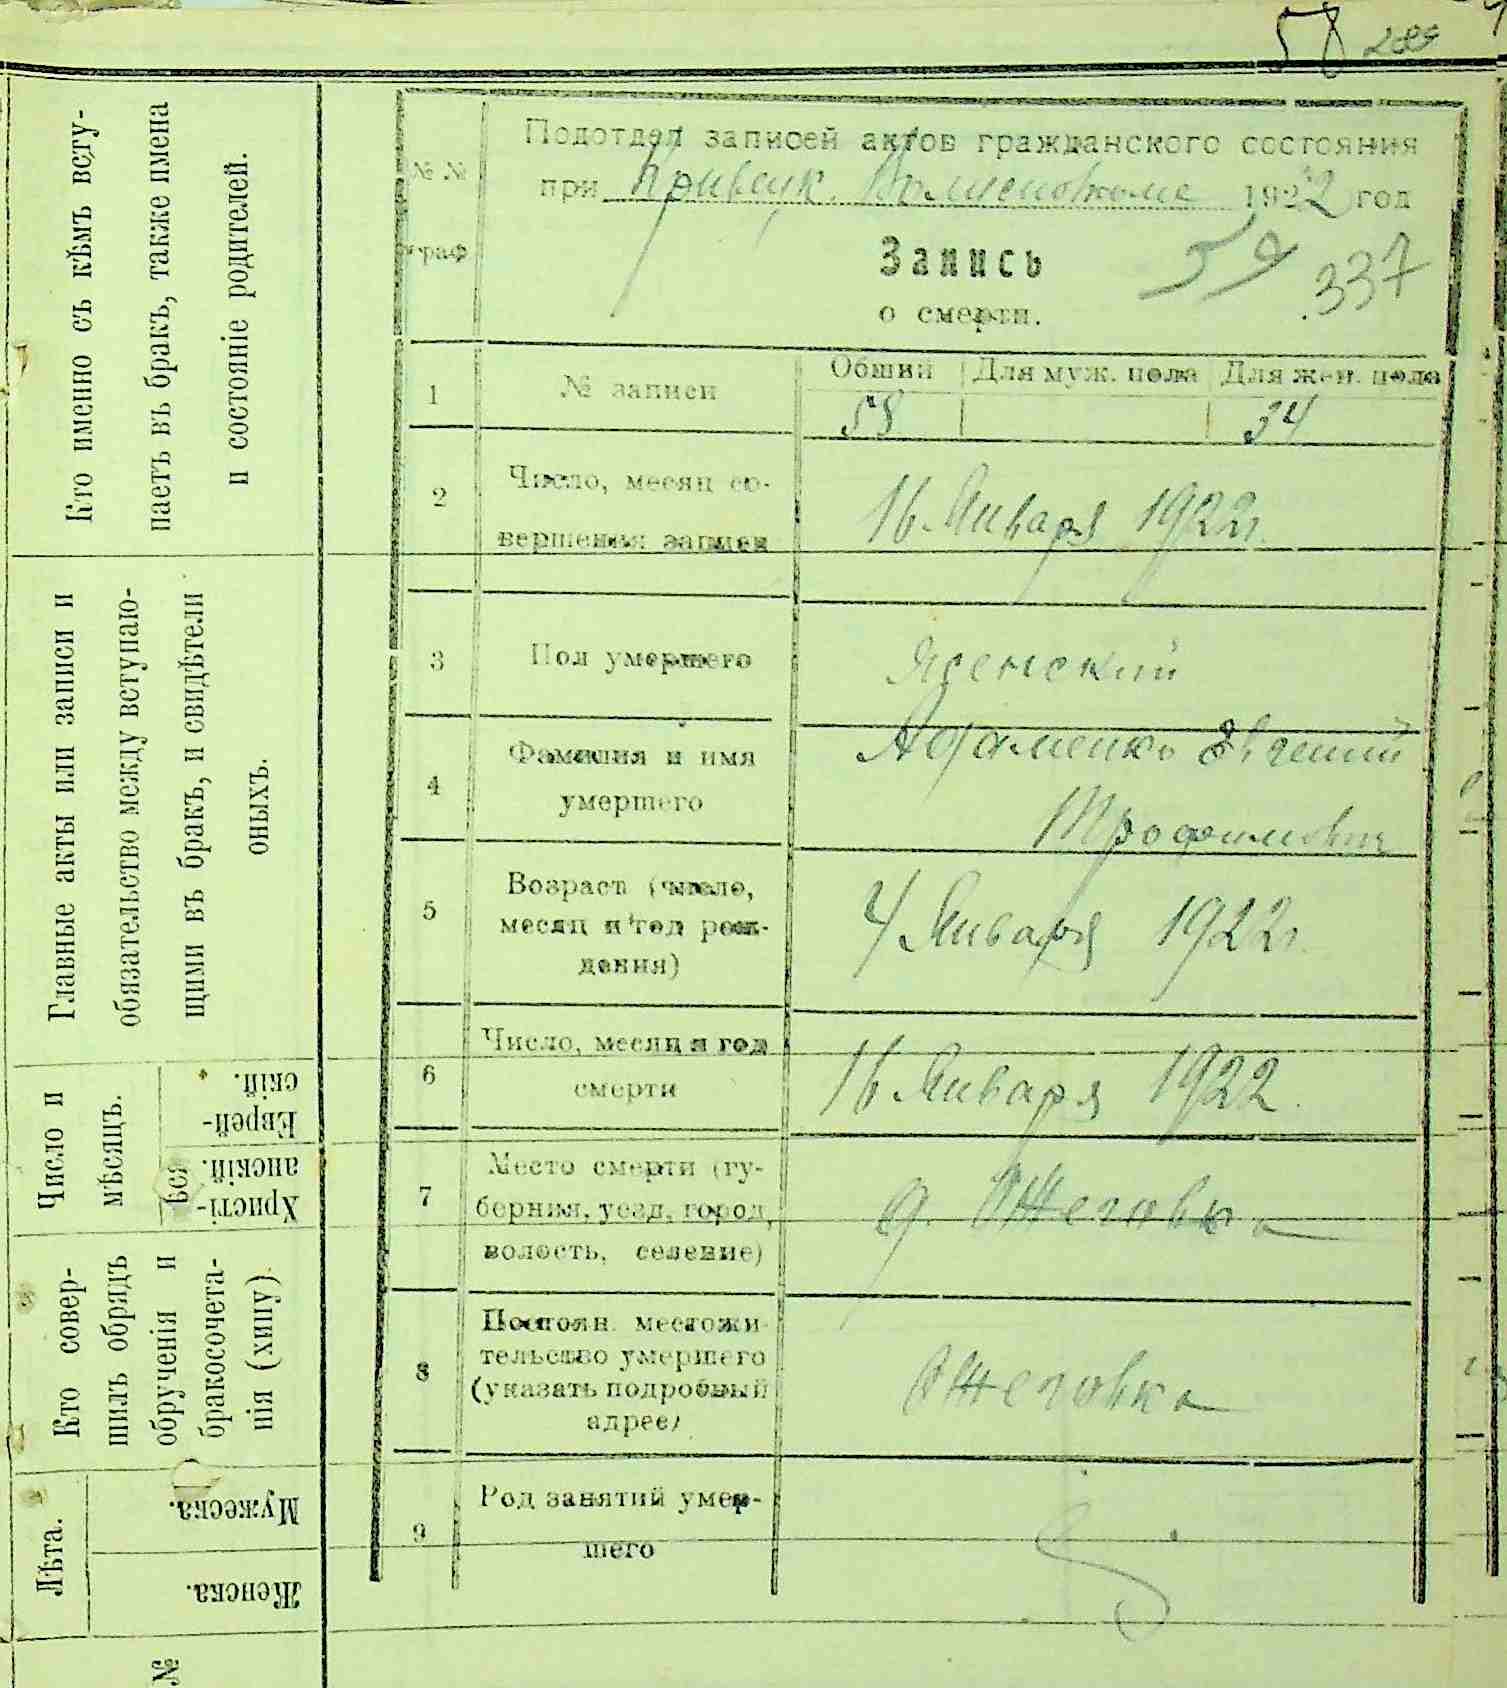 58 289
Подотдел записей актов гражданского состояния
при 1922 год
№ №
граф
Запись
59 337
о смерти.
1 № записи Общий Для муж. пола Для жен. пола
58 34
2 Число, месяц со-
вершения записи
16 Января 1922 г.
3 Пол умершего женский
4 Фамилия и имя
умершего
Адаменко Евгений
Трофимович
5 Возраст (число,
месяц и год рож-
дения)
4 Января 1922 г.
6 Число, месяц и год
смерти
16 Января 1922.
7 Место смерти (гу-
берния, уезд, город,
волость, селение)
д.
8 Постоян. местожи-
тельство умершего
(указать подробный
адрес)
9 Род занятий умер-
шего
Кто именно съ кѣмъ всту-
паетъ въ бракъ, также имена
и состояніе родителей.
Главные акты или записи и
обязательство между вступаю-
щими въ бракъ, и свидѣтели
оныхъ.
Число и
мѣсяцъ.
Еврей-
скій.
Христі-
анскій.
Кто совер-
шилъ обрядъ
обрученія и
бракосочета-
нія (хипу)
Лѣта.
Мужеска.
Женска.
№